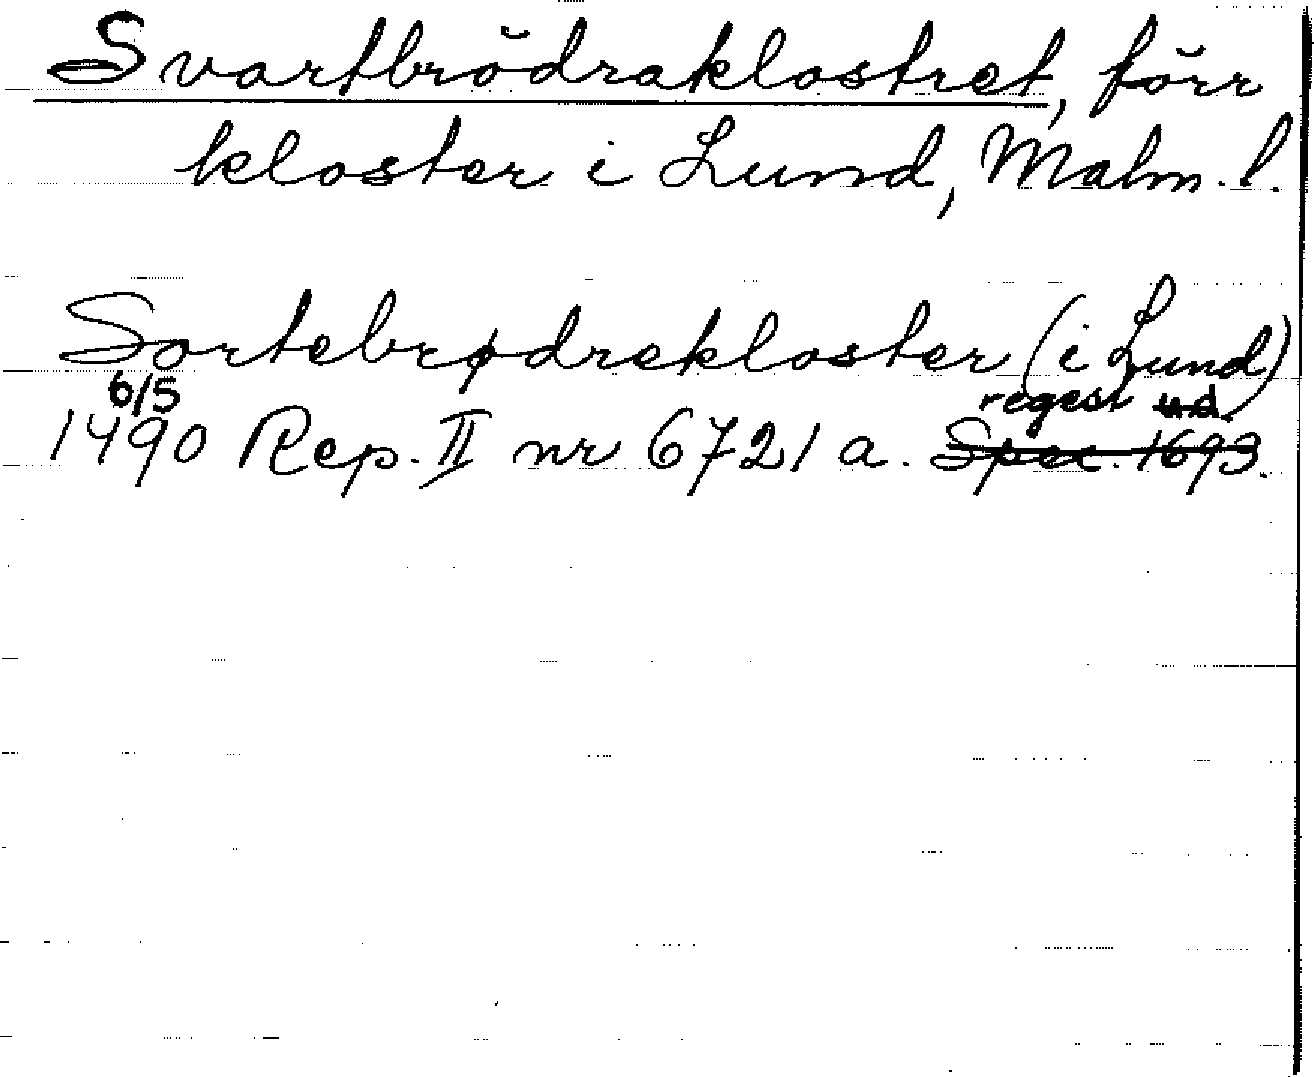 Svartbrödraklostret, förr
kloster i Lund, Malm. l.
Sortebrødrekloster (i Lund)
6/5 regest u.d.
1490 Rep. II nr 6721 a. Spec. 1693.